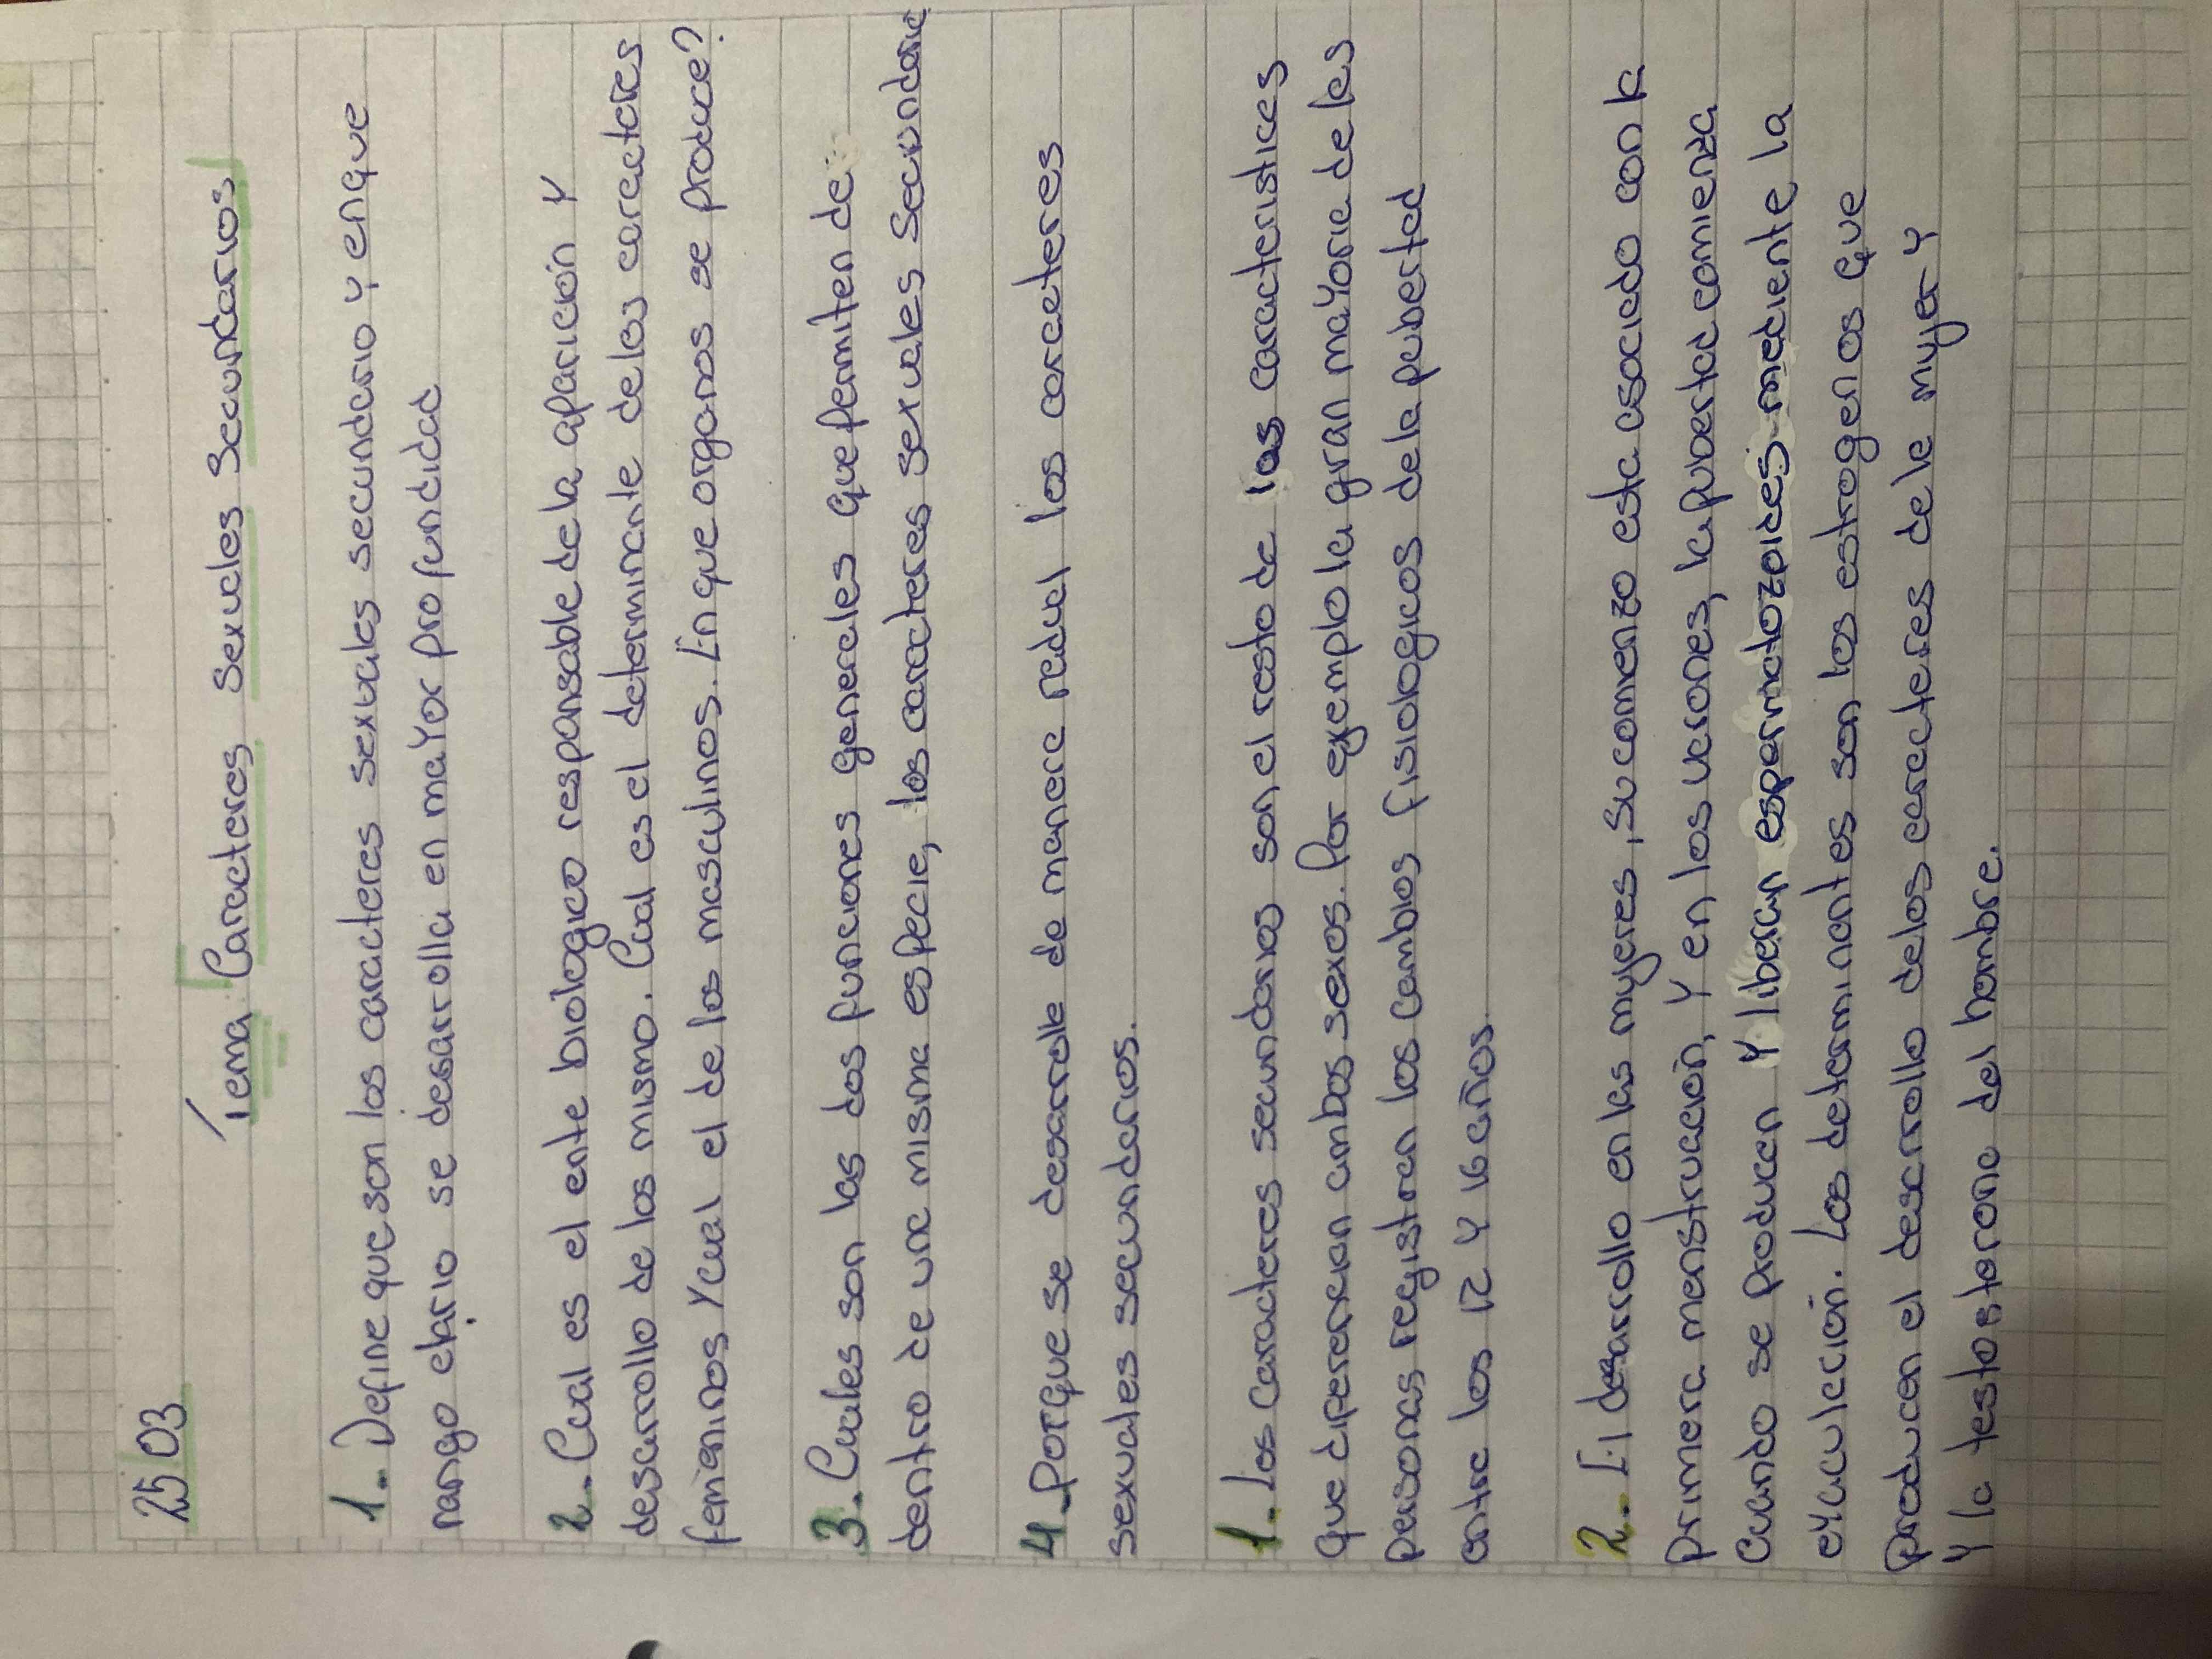 25 03
Tema: Caracteres sexuales Secundarios
1.- Define que son los caracteres sexuales secundario y en que
rango etario se desarrolla en mayor profundidad
2.- Cual es el ente biologico responsable de la aparición y
desarrollo de los mismo. Cual es el determinante de los caracteres
femeninos y cual el de los masculinos. En que organos se produce?
3.- Cuales son las dos funciones generales que permiten de
dentro de una misma especie, los caracteres sexuales secundario
4.- Porque se desarrolle de manera redual los carceteres
sexuales secundarios.
1.- Los Caracteres secundarios son el resto de las caracteristicas
que diferencian ambos sexos. Por ejemplo la gran mayoria de las
personas registran los cambios fisiologicos de la pubertad
entre los 12 y 16 años.
2.- El desarrollo en las mujeres, su comienzo esta asociado con la
primera menstruación, y en los varones, la pubertad comienza
Cuando se producen y liberan espermatozoides mediente la
eyaculación. Los determinantes son los estrogenos que
producen el desarrollo de los carecteres dele mujer y
y la testosterona del hombre.